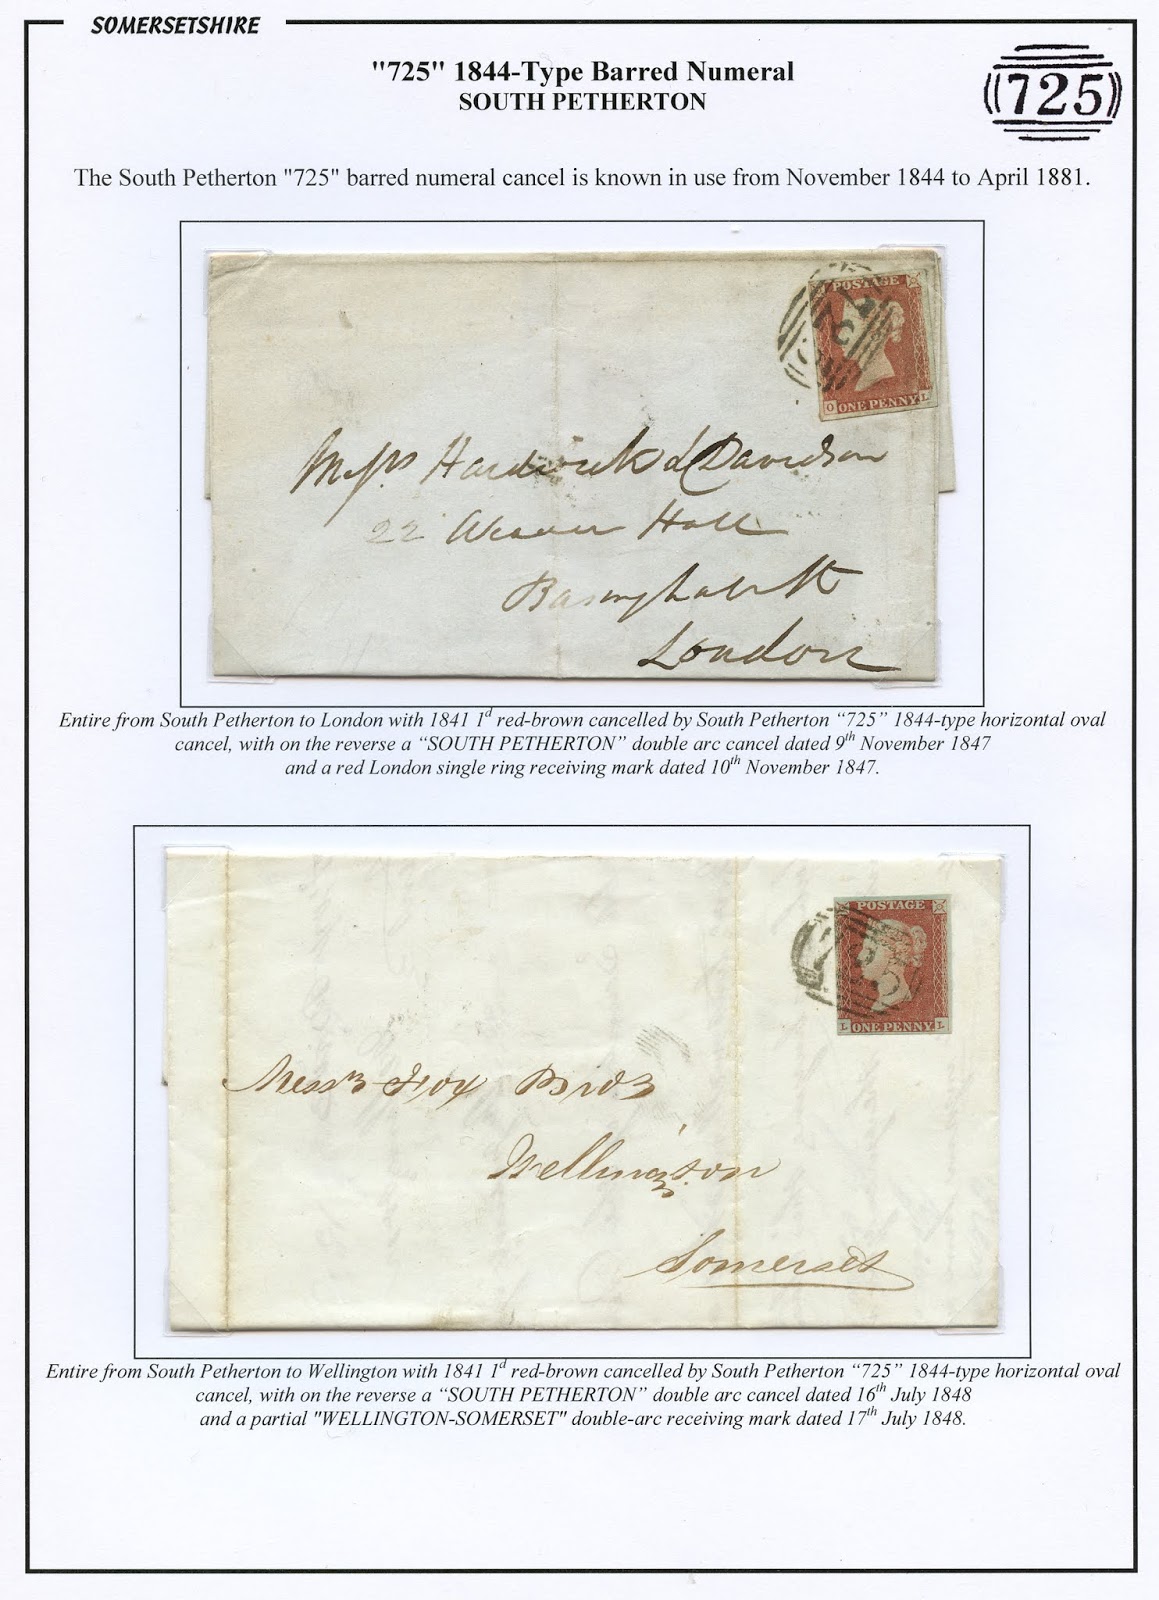 SOMERSETSHIRE
"725" 1844-Type Barred Numeral
SOUTH PETHERTON
725
The South Petherton "725" barred numeral cancel is known in use from November 1844 to April 1881.
POSTAGE
O ONE PENNY L
Messrs Hardwick & Davidson
22 Weaver Hall
Basinghall St
London
Entire from South Petherton to London with 1841 1d red-brown cancelled by South Petherton “725” 1844-type horizontal oval
cancel, with on the reverse a “SOUTH PETHERTON” double arc cancel dated 9th November 1847
and a red London single ring receiving mark dated 10th November 1847.
POSTAGE
L ONE PENNY L
Messrs Fox Bros
Wellington
Somerset
Entire from South Petherton to Wellington with 1841 1d red-brown cancelled by South Petherton “725” 1844-type horizontal oval
cancel, with on the reverse a “SOUTH PETHERTON” double arc cancel dated 16th July 1848
and a partial "WELLINGTON-SOMERSET" double-arc receiving mark dated 17th July 1848.